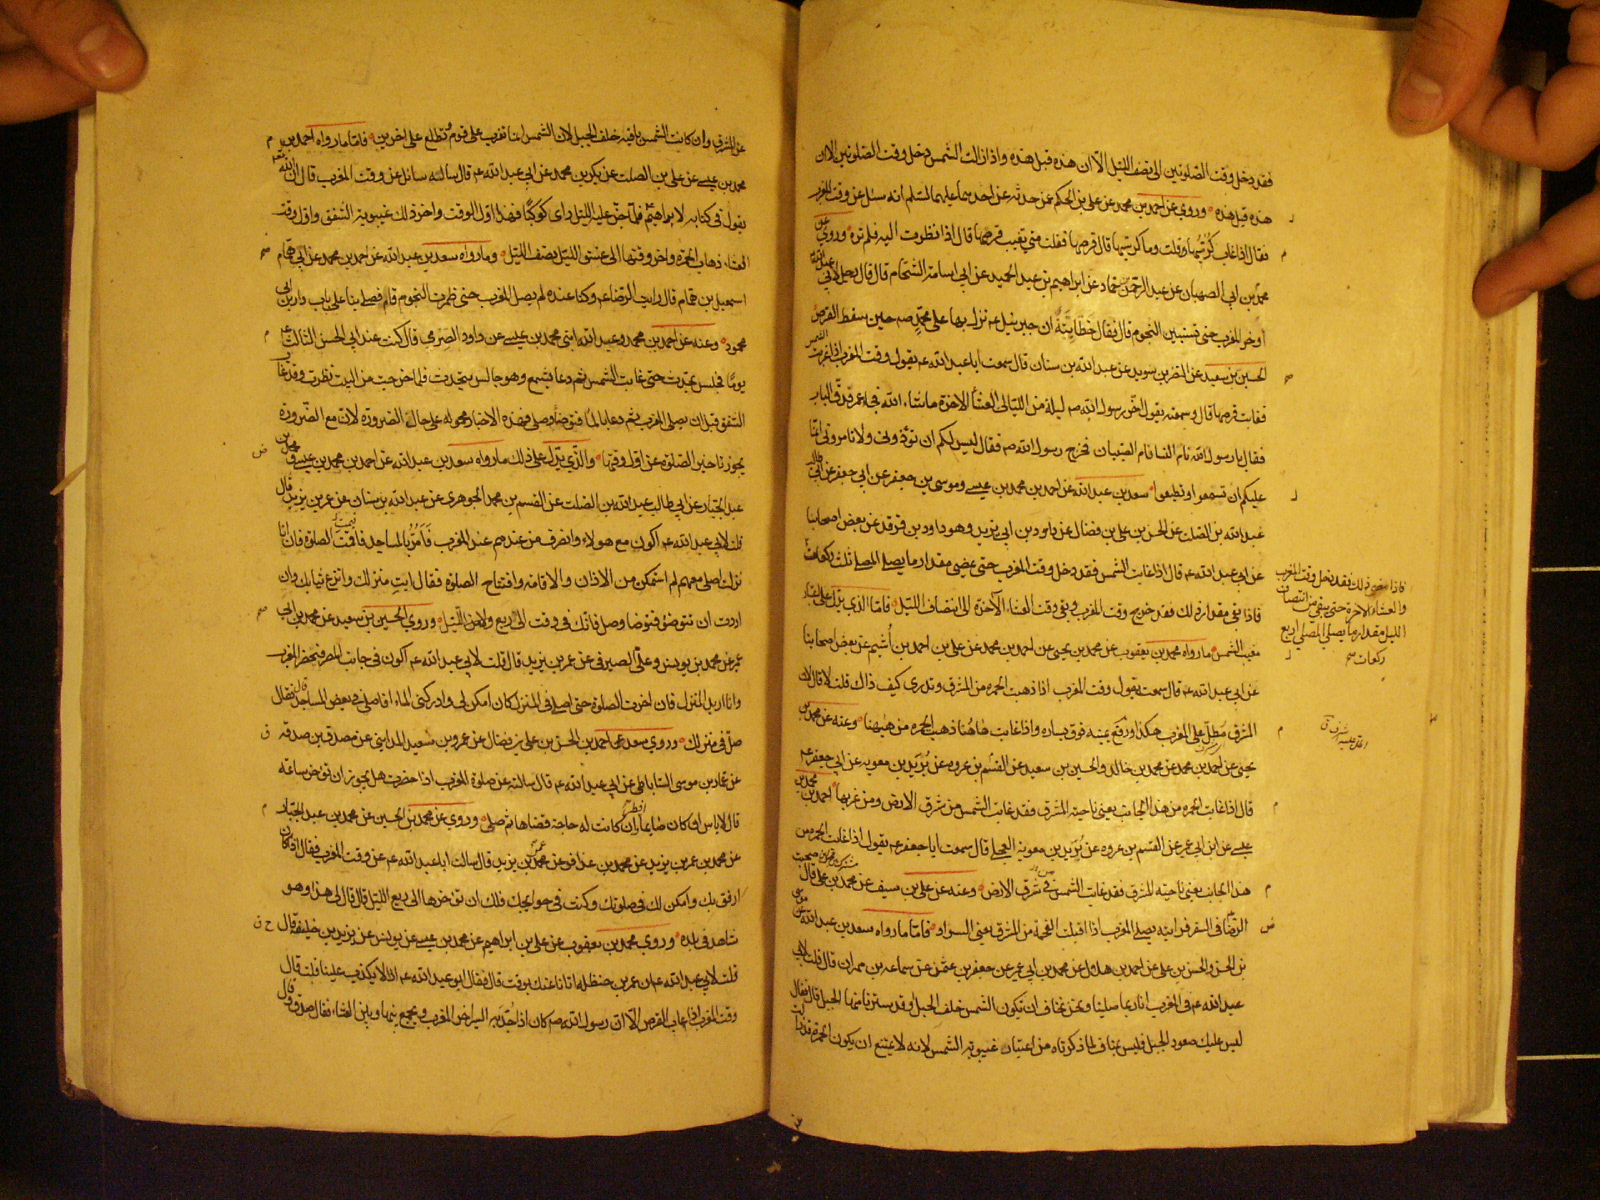 فقد دخل وقت الصلوتين الى نصف الليل الا ان هذه قبل هذه واذا زالت الشمس دخل وقت الصلوتين الا ان
هذه قبل هذه وروى عن احمد بن محمد عن على بن الحكم عن حدثه عن احدهما عليهما السلم انه سئل عن وقت المغرب
فقال اذا غاب كرسيها قلت وما كرسيها قال قرصها فقلت متى تغيب قرصها قال اذا نظرت اليه فلم تره وروى
محمد بن ابى الصهبان عن عبد الرحمن بن حماد عن ابراهيم بن عبد الحميد عن ابى اسامة الشحام قال قال رجل لابى عبد الله
أوخر المغرب حتى تستبين النجوم قال فقال خطابية ان جبرئيل ع نزل بها على محمد ص حين سقط القرص
الحسين بن سعيد عن النضر بن سويد عن عبد الله بن سنان قال سمعت ابا عبد الله ع يقول وقت المغرب اذا غربت الشمس
فغاب قرصها قال وسمعته يقول اخر رسول الله ص ليلة من الليالى العشاء الاخرة ما شاء الله فجاء عمر فدق الباب
فقال يا رسول الله نام النساء نام الصبيان فخرج رسول الله ص فقال ليس لكم ان تؤذونى ولا تامرونى انما
عليكم ان تسمعوا وتطيعوا سعد بن عبد الله عن احمد بن محمد بن عيسى وموسى بن جعفر عن ابى جعفر عن ابى طالب
عبد الله بن الصلت عن الحسن بن على بن فضال عن داود بن ابى يزيد وهو داود بن فرقد عن بعض اصحابنا
عن ابى عبد الله ع قال اذا غابت الشمس فقد دخل وقت المغرب حتى يمضى مقدار ما يصلى المصلى ثلث ركعات
فاذا بقى مقدار ذلك فقد خرج وقت المغرب وبقى وقت العشاء الآخرة الى انتصاف الليل فاما الذى يدل على اعتبار
مغيب الشمس ما رواه محمد بن يعقوب عن محمد بن يحيى عن احمد بن محمد عن على بن احمد بن أشيم عن بعض اصحابنا
عن ابى عبد الله ع قال سمعته يقول وقت المغرب اذا ذهبت الحمرة من المشرق وتدرى كيف ذاك قلت لا قال لان
المشرق مطل على المغرب هكذا ورفع يمينه فوق يساره واذا غابت هاهنا ذهبت الحمرة من ههنا وعنه عن محمد بن
يحيى عن احمد بن محمد عن محمد بن خالد والحسين بن سعيد عن القسم بن عروه عن بريد بن معويه عن ابى جعفر ع
قال اذا غابت الحمره من هذا الجانب يعنى ناحية المشرق فقد غابت الشمس من شرق الارض ومن غربها احمد بن محمد بن
عيسى عن ابن ابى عمير عن القسم بن عروه عن بريد بن معوية العجلى قال سمعت ابا جعفر ع يقول اذا غابت الحمره من
هذا الجانب يعنى ناحية المشرق فقد غابت الشمس فى شرق الارض وعنه عن على بن سيف عن محمد بن على قال
الرضا فى السفر فرايته يصلى المغرب اذا اقبلت الفحمة من المشرق يعنى السواد فاما ما رواه سعد بن عبد الله عن موسى
بن الحسن والحسن بن على عن احمد بن هلال عن محمد بن ابى عمير عن جعفر بن عثمن عن سماعه بن مهران قال قلت لابى
عبد الله ع فى المغرب انا ربما صلينا ونحن نخاف ان تكون الشمس خلف الجبل او قد سترنا منها الجبل قال فقال
ليس عليك صعود الجبل فليس بمناف لما ذكرناه من اعتبار غيبوبة الشمس لانه لا يمتنع ان يكون الحمره قد زالت
فاذا مضى ذلك فقد دخل وقت المغرب
والعشاء الاخرة حتى يبقى من انتصاف
الليل مقدار ما يصلى المصلى اربع
ركعات صح
عن المشرق وان كانت الشمس باقيه خلف الجبل لان الشمس انما تغرب على قوم وتطلع على اخرين فاما ما رواه احمد بن
محمد بن عيسى عن على بن الصلت عن بكر بن محمد عن ابى عبد الله ع قال سالته سائل عن وقت المغرب قال ان الله تعالى
يقول فى كتابه لابراهيم فلما جن عليه الليل راى كوكبا فهذا اول الوقت واخر ذلك غيبوبة الشفق واول وقت
العشاء ذهاب الحمرة واخر وقتها الى غسق الليل نصف الليل وما رواه سعد بن عبد الله عن احمد بن محمد عن ابى همام
اسمعيل بن همام قال رايت الرضا ع وكنا عنده لم يصل المغرب حتى ظهرت النجوم قام فصلى بنا على باب دار ابن ابى
محمود وعنه عن احمد بن محمد وعبد الله ابنى محمد بن عيسى عن داود الصرمى قال كنت عند ابى الحسن الثالث ع
يوما فجلس يحدث حتى غابت الشمس ثم دعا بشمع وهو جالس يتحدث فلما خرجت من البيت نظرت وقد غاب
الشفق قبل ان يصلى المغرب ثم دعا بالماء فتوضا وصلى فهذه الاخبار محموله على حال الضرورة لان مع الضرورة
يجوز تاخير الصلوة عن اول وقتها والذى يدل على ذلك ما رواه سعد بن عبد الله عن احمد بن محمد بن عيسى ومحمد بن
عبد الجبار عن ابى طالب عبد الله بن الصلت عن القسم بن محمد الجوهرى عن عبد الله بن سنان عن عمر بن يزيد قال
قلت لابى عبد الله ع اكون مع هولاء وانصرف من عندهم عند المغرب فأمر بالمساجد فاقيمت الصلوة فان انا
نزلت اصلى معهم لم استمكن من الاذان والاقامة وافتتاح الصلوة فقال ايت منزلك وانزع ثيابك وان
اردت ان تتوضؤ فتوضا وصل فانك فى وقت الى ربع الليل وروى الحسين بن سعيد عن محمد بن ابى
عمير عن محمد بن يونس وعلى الصيرفى عن عمر بن يزيد قال قلت لابى عبد الله ع اكون فى جانب المصر فتحضر المغرب
وانا اريد المنزل فان اخرت الصلوة حتى اصلى فى المنزل كان امكن لى وادركنى المساء افاصلى فى بعض المساجد قال فقال
صل فى منزلك وروى سعد عن احمد بن الحسن بن على بن فضال عن عمرو بن سعيد المدائنى عن مصدق بن صدقه
عن عمار بن موسى الساباطى عن ابى عبد الله ع قال سالته عن صلوة المغرب اذا حضرت هل يجوز ان تؤخر ساعة
قال لا باس ان كان صايما افطر وان كانت له حاجة قضاها ثم صلى وروى عن محمد بن الحسين عن محمد بن عبد الجبار
عن محمد بن عمر بن يزيد عن محمد بن عذافر عن عمر بن يزيد قال سالت ابا عبد الله ع عن وقت المغرب فقال اذا كان
ارفق بك وامكن لك فى صلوتك وكنت فى حوايجك فلك ان تؤخرها الى ربع الليل قال قال لى هذا وهو
شاهد فى بلده وروى محمد بن يعقوب عن على بن ابراهيم عن محمد بن عيسى عن يونس عن يزيد بن خليفة قال
قلت لابى عبد الله ع ان عمر بن حنظله اتانا عنك بوقت قال فقال ابو عبد الله ع اذا لا يكذب علينا قلت قال
وقت المغرب اذا غاب القرص الا ان رسول الله ص كان اذا جد به السير اخر المغرب ويجمع بينها وبين العشاء فقال صدق وقال